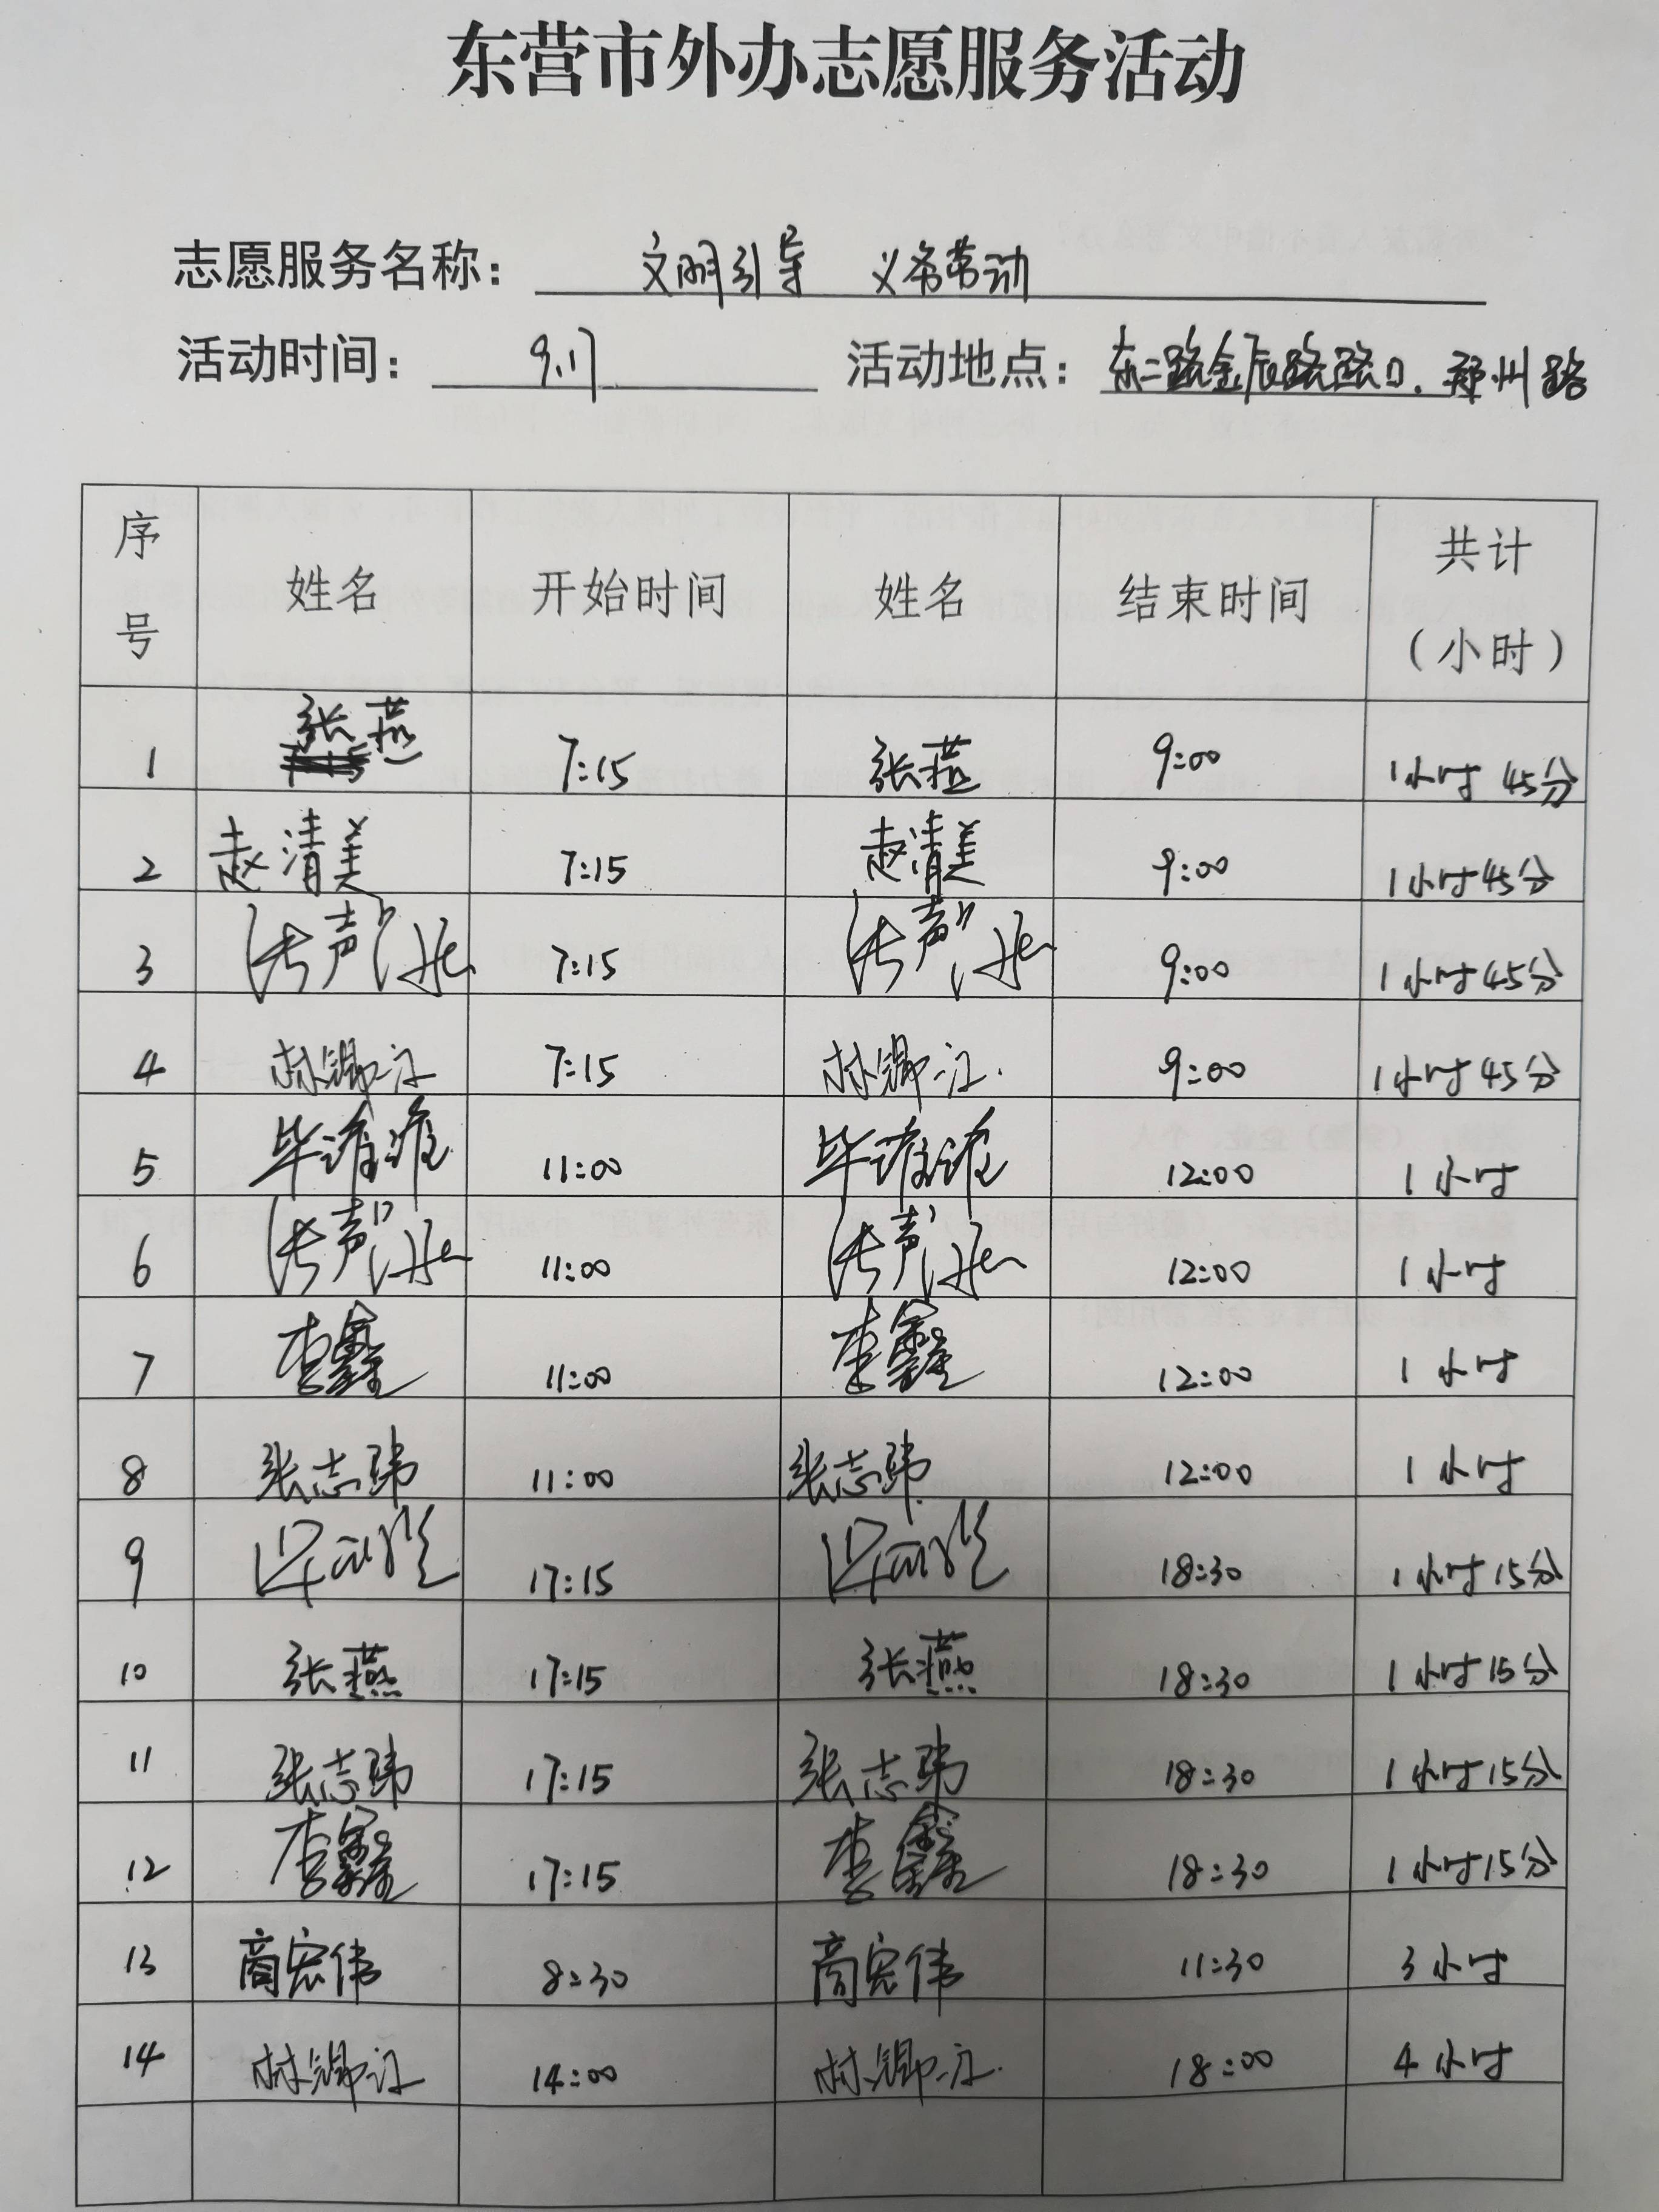 东营市外办志愿服务活动
志愿服务名称： 文明引导 义务劳动
活动时间： 9.17 活动地点： 东二路金辰路路口. 郑州路
序号 姓名 开始时间 姓名 结束时间 共计（小时）
1 张燕 7:15 张燕 9:00 1小时45分
2 赵清美 7:15 赵清美 9:00 1小时45分
3 7:15 9:00 1小时45分
4 林卿江 7:15 林卿江 9:00 1小时45分
5 毕谁谁 11:00 毕谁谁 12:00 1小时
6 11:00 12:00 1小时
7 李鑫 11:00 李鑫 12:00 1小时
8 张志玮 11:00 张志玮 12:00 1小时
9 17:15 18:30 1小时15分
10 张燕 17:15 张燕 18:30 1小时15分
11 张志玮 17:15 张志玮 18:30 1小时15分
12 李鑫 17:15 李鑫 18:30 1小时15分
13 商宏伟 8:30 商宏伟 11:30 3小时
14 林卿江 14:00 林卿江 18:00 4小时